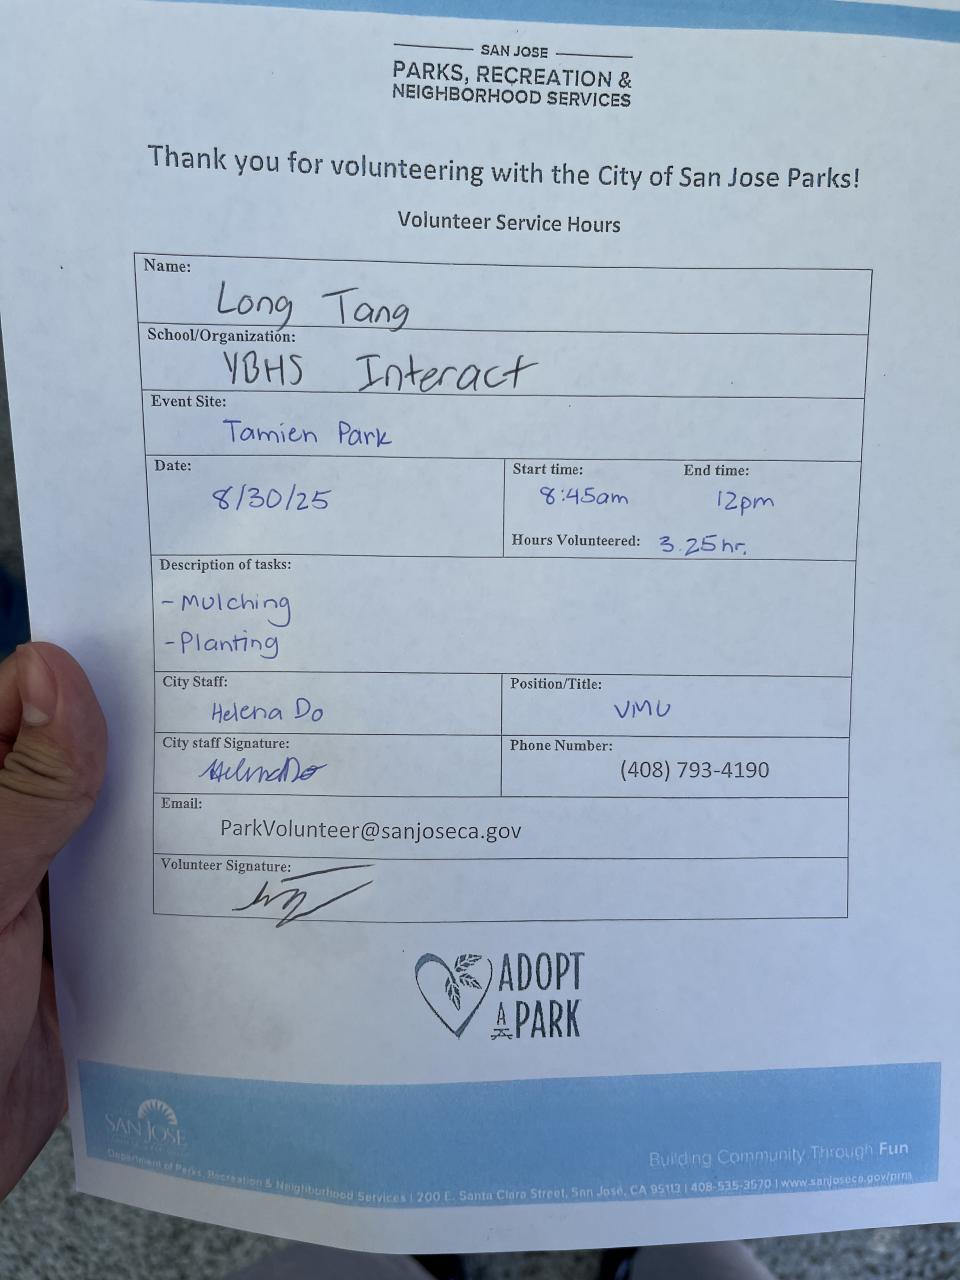 SAN JOSE
PARKS, RECREATION &
NEIGHBORHOOD SERVICES
Thank you for volunteering with the City of San Jose Parks!
Volunteer Service Hours
Name:
Long Tang
School/Organization:
YBHS Interact
Event Site:
Tamien Park
Date:
8/30/25
Start time: End time:
8:45am 12pm
Hours Volunteered: 3.25hr.
Description of tasks:
-Mulching
-Planting
City Staff:
Helena Do
Position/Title:
VMU
City staff Signature:
Helena Do
Phone Number:
(408) 793-4190
Email:
ParkVolunteer@sanjoseca.gov
Volunteer Signature:
ADOPT
A
PARK
SAN JOSE
Building Community Through Fun
Department of Parks, Recreation & Neighborhood Services | 200 E. Santa Clara Street, San José, CA 95113 | 408-535-3570 | www.sanjoseca.gov/prns